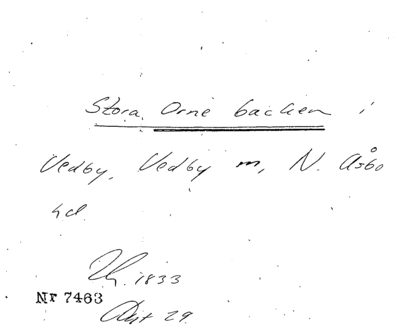 Stora Orne backen i
Vedby, Vedby m, N. Åsbo
hd.
1833
Nr 7463
29